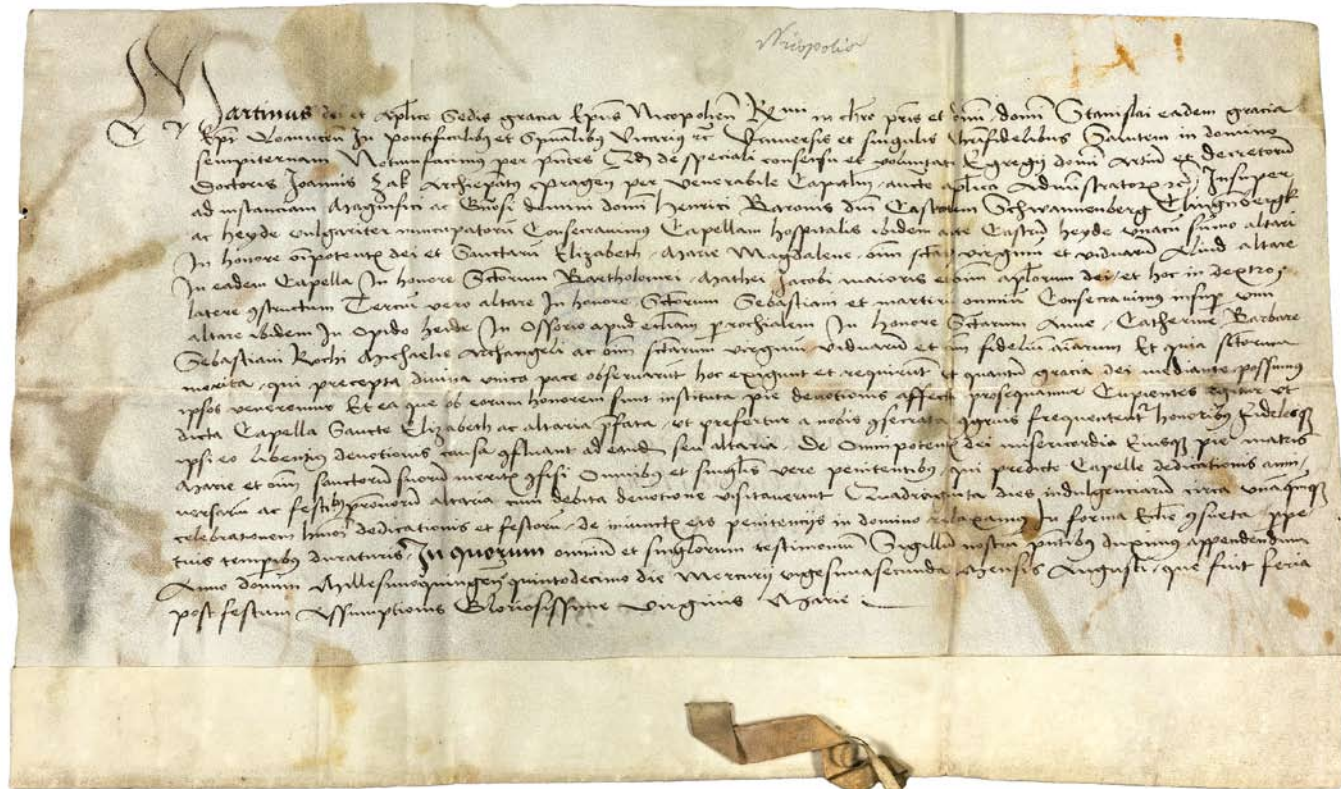 Nicopolis
Martinus dei et aplice Sedis gracia Epus Nicopolien Rmi in chro pris et dni domi Stanislai eadem gracia
Epi Olomucen In pontificalibus et Spualibus Vicarius rc Vniuersis et singulis xpifidelibus Salutem in domino
sempiternam Notumfacimus per pntes Qd de speciali consensu et voluntate Egregij domi Artiu et decretoru
Doctoris Joannis Zak Archiepatus Pragen per venerabile Capitlm aucte aplica Administratorx rc Insuper
ad instanciam Magnifici ac Gnosi domini domi Henrici Baronis dni Castrorum Schwannenberg Clingenbergk
ac heyde vulgariter nuncupatoru Consecrauimus Capellam hospitalis ibidem ante Castru heyde vnacu sumo altari
In honore oipotentx dei et Sanctaru Elizabeth Marie Magdalene oim sctaru virginu et viduaru Aliud altare
In eadem Capella In honore Sctorum Bartholomei Mathei Jacobi maioris et oim aplorum dei et hoc in dextro
latere constructum Tercium vero altare In honore Sctorum Sebastiani et martirum omniu Consecrauimus insup vnu
altare ibidem In Opido heide In Ossorio apud eccliam prochialem In honore Sctarum Anne Catherine Barbare
Sebastiani Rochi Michaelis Archangeli ac oim sctarum virginu viduaru et oim fideliu aiarum Et quia sctorum
merita qui precepta diuina vnico pace obseruarunt hoc exigunt et requirunt et quantu gracia dei mediante possumus
ipsos veneremur Et ea que ob eorum honorem sunt instituta pie deuotionis affectu prosequamur Cupientes egitur vt
dicta Capella Sancte Elizabeth ac altaria pfata vt prefertur a nobis consecrata congruis frequentent honoribus fidelesq
ipsi eo libentius deuotionis causa confluant ad eand seu altaria De Omnipotentx dei misericordia Eiusq pie matris
Marie et oim sanctoru suoru meritx confisi Omnibus et singlis vere penitentibus qui predicte Capelle dedicationis anni
versariu ac festibus pronoru altaria cum debita deuotione visitauerunt Quadraginta dies indulgenciaru circa vnaquaq
celebrationem humoi dedicationis et festoru de iniunctx eis penitencijs in domino relaxamus In forma Ecclie consueta ppe
tuis tempibus duraturis In quorum omniu et singlorum testimonium Sigillu nostru pntibus duximus appendendum
Anno domini Millesimoquingen quintodecimo die Mercurij vigesimasecunda Mensis Augusti que fuit feria
post festum Assumptionis Gloriosissime virginis Marie